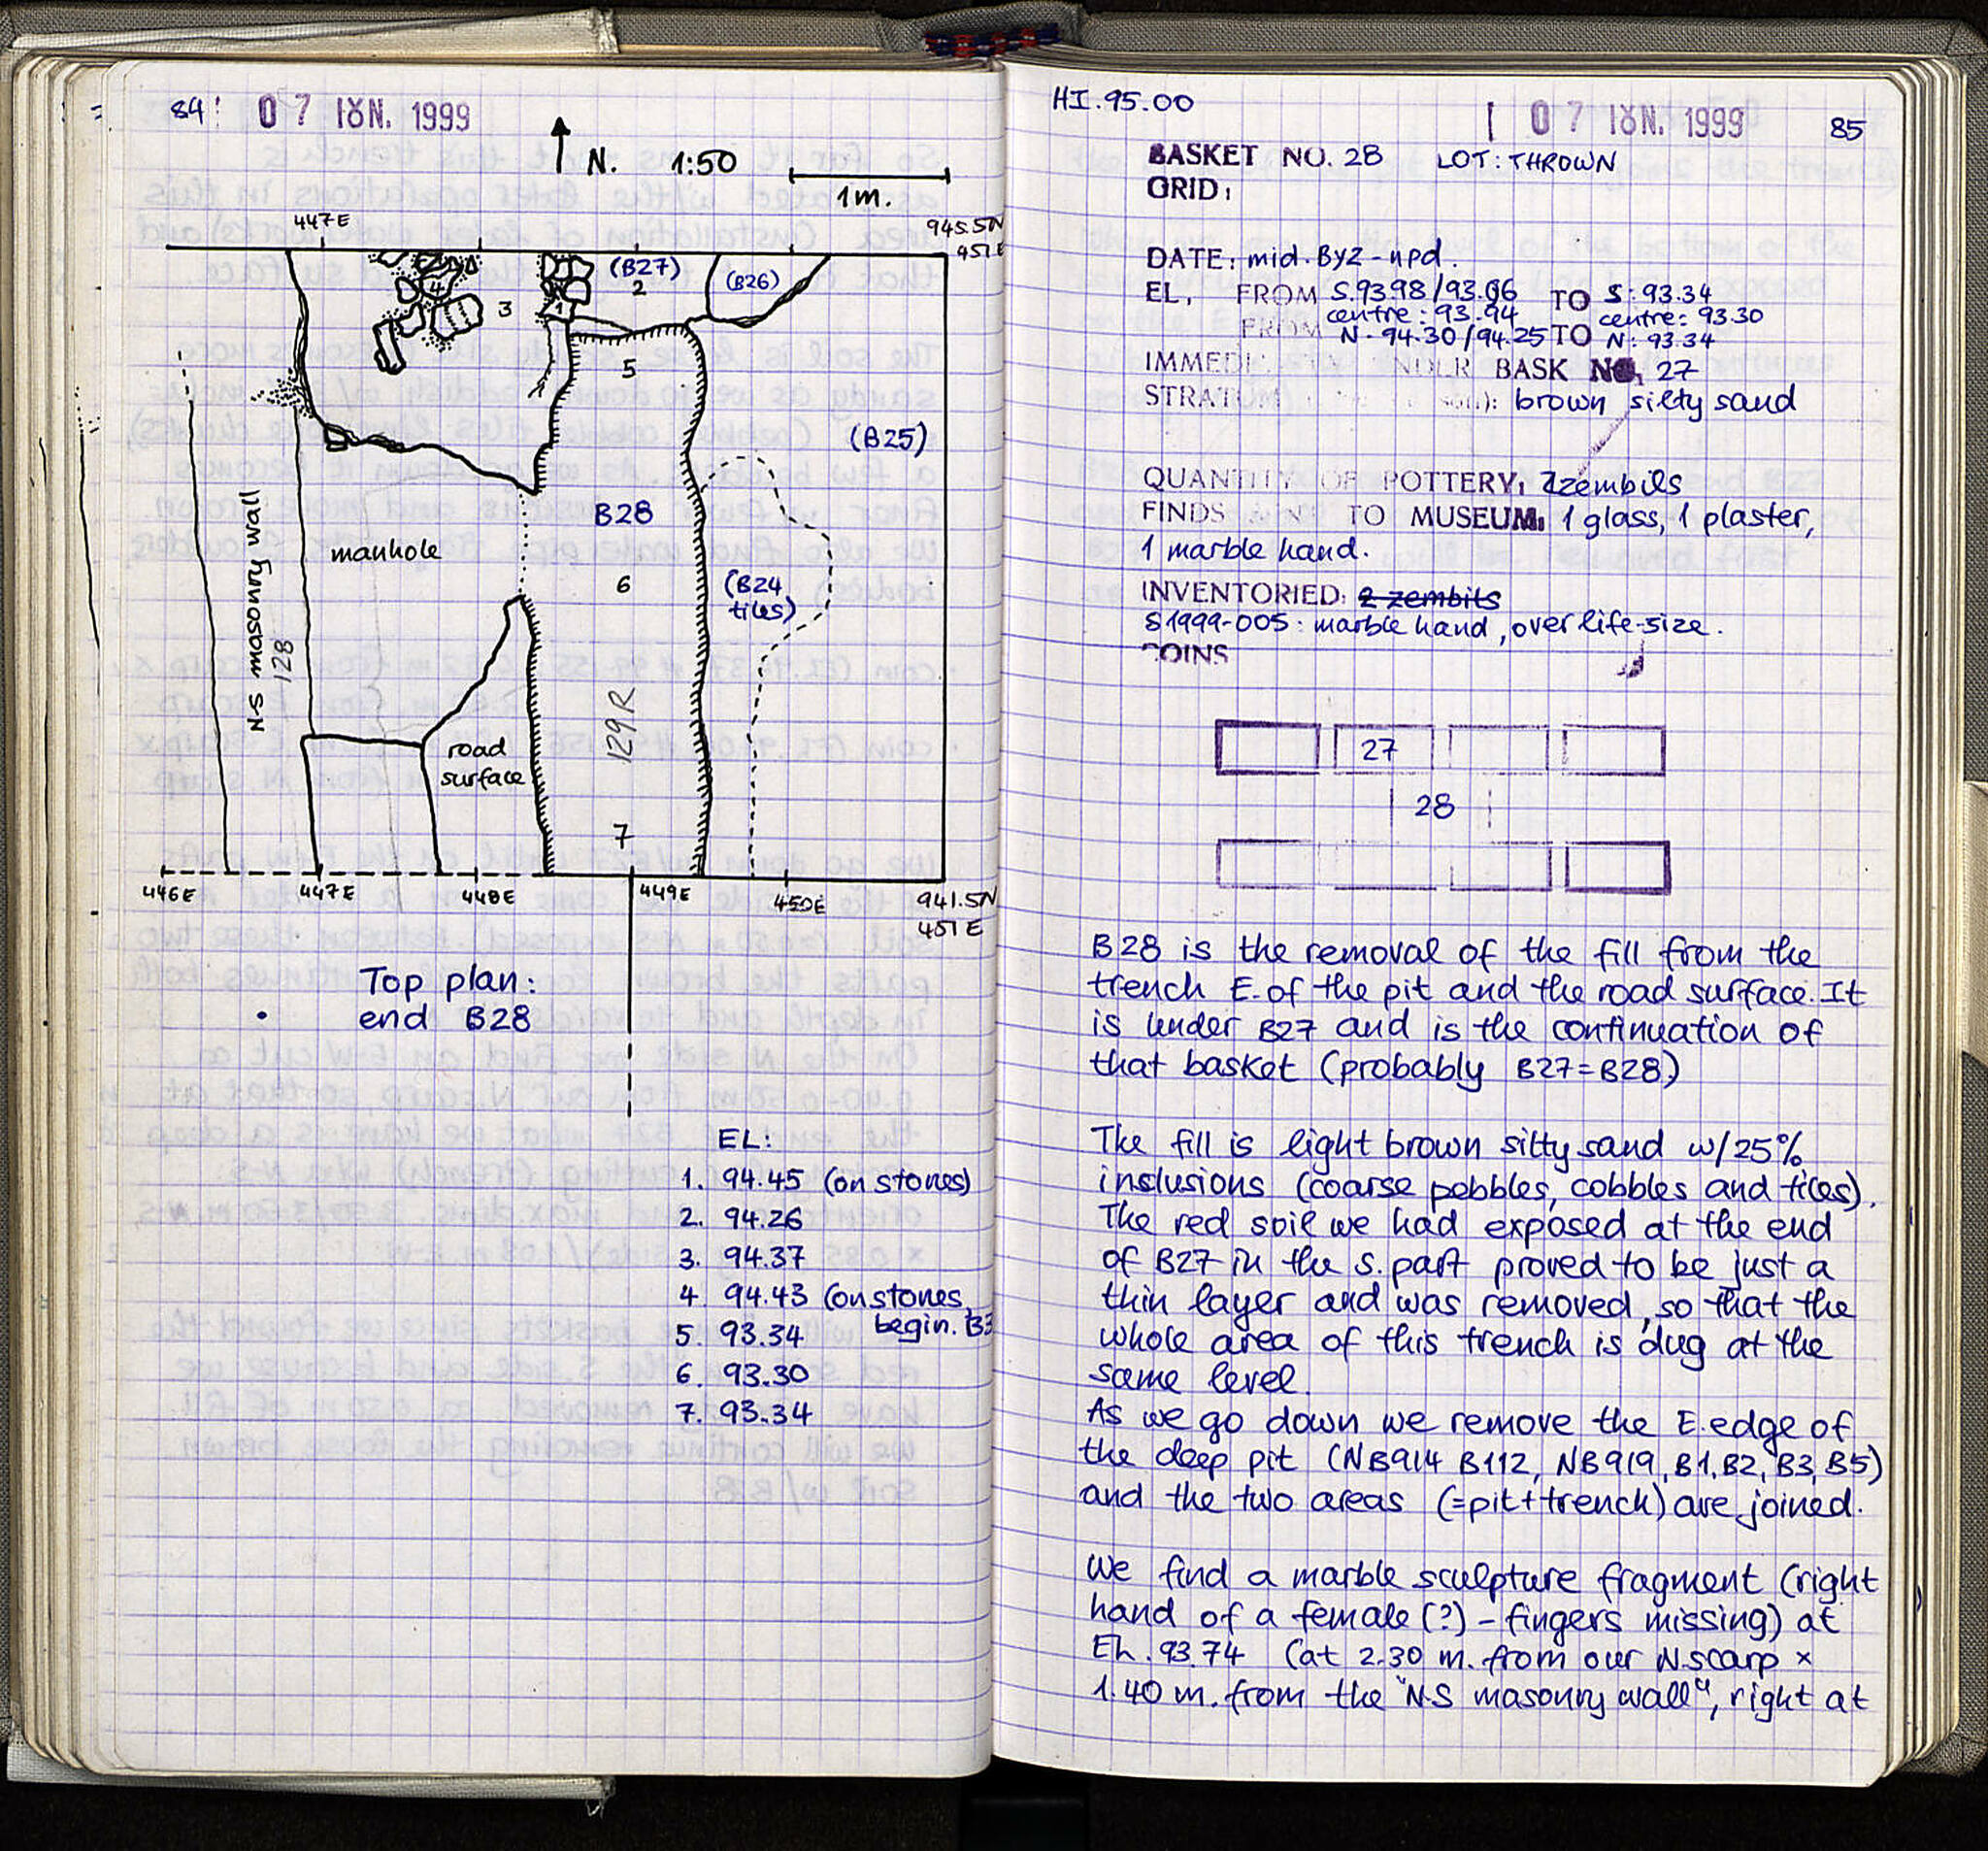 84
07 ΙΟΥΝ. 1999
N. 1:50
1m.
447E
945.5N
451E
(B27)
(B26)
1
2
3
4
5
(B25)
B28
manhole
6
(B24
tiles)
N-S masonry wall
128
129 R
road
surface
7
446E
447E
448E
449E
450E
941.5N
451E
Top plan:
end B28
EL:
1. 94.45 (on stones)
2. 94.26
3. 94.37
4. 94.43 (on stones,
begin. B3
5. 93.34
6. 93.30
7. 93.34
HI.95.00
07 ΙΟΥΝ. 1999
85
BASKET NO. 28 LOT: THROWN
GRID:
DATE: mid. Byz - npd.
EL, FROM S.93.98/93.96 TO S: 93.34
centre: 93.94 centre: 93.30
FROM N. 94.30/94.25 TO N: 93.34
IMMEDI UNDER BASK NO. 27
STRATUM brown silty sand
QUANTITY OF POTTERY: 2zembils
FINDS TO MUSEUM: 1 glass, 1 plaster,
1 marble hand.
INVENTORIED: 2 zembils
S1999-005: marble hand, over life-size.
COINS
27
28
B28 is the removal of the fill from the
trench E. of the pit and the road surface. It
is under B27 and is the continuation of
that basket (probably B27=B28)
The fill is light brown silty sand w/25%
inslusions (coarse pebbles, cobbles and tiles).
The red soil we had exposed at the end
of B27 in the S. part proved to be just a
thin layer and was removed, so that the
whole area of this trench is dug at the
same level.
As we go down we remove the E. edge of
the deep pit (NB914 B112, NB919, B1, B2, B3, B5)
and the two areas (=pit+trench) are joined.
We find a marble sculpture fragment (right
hand of a female (?) - fingers missing) at
Eh. 93.74 (at 2.30 m. from our N. scarp ×
1.40 m. from the "N-S masonry wall", right at